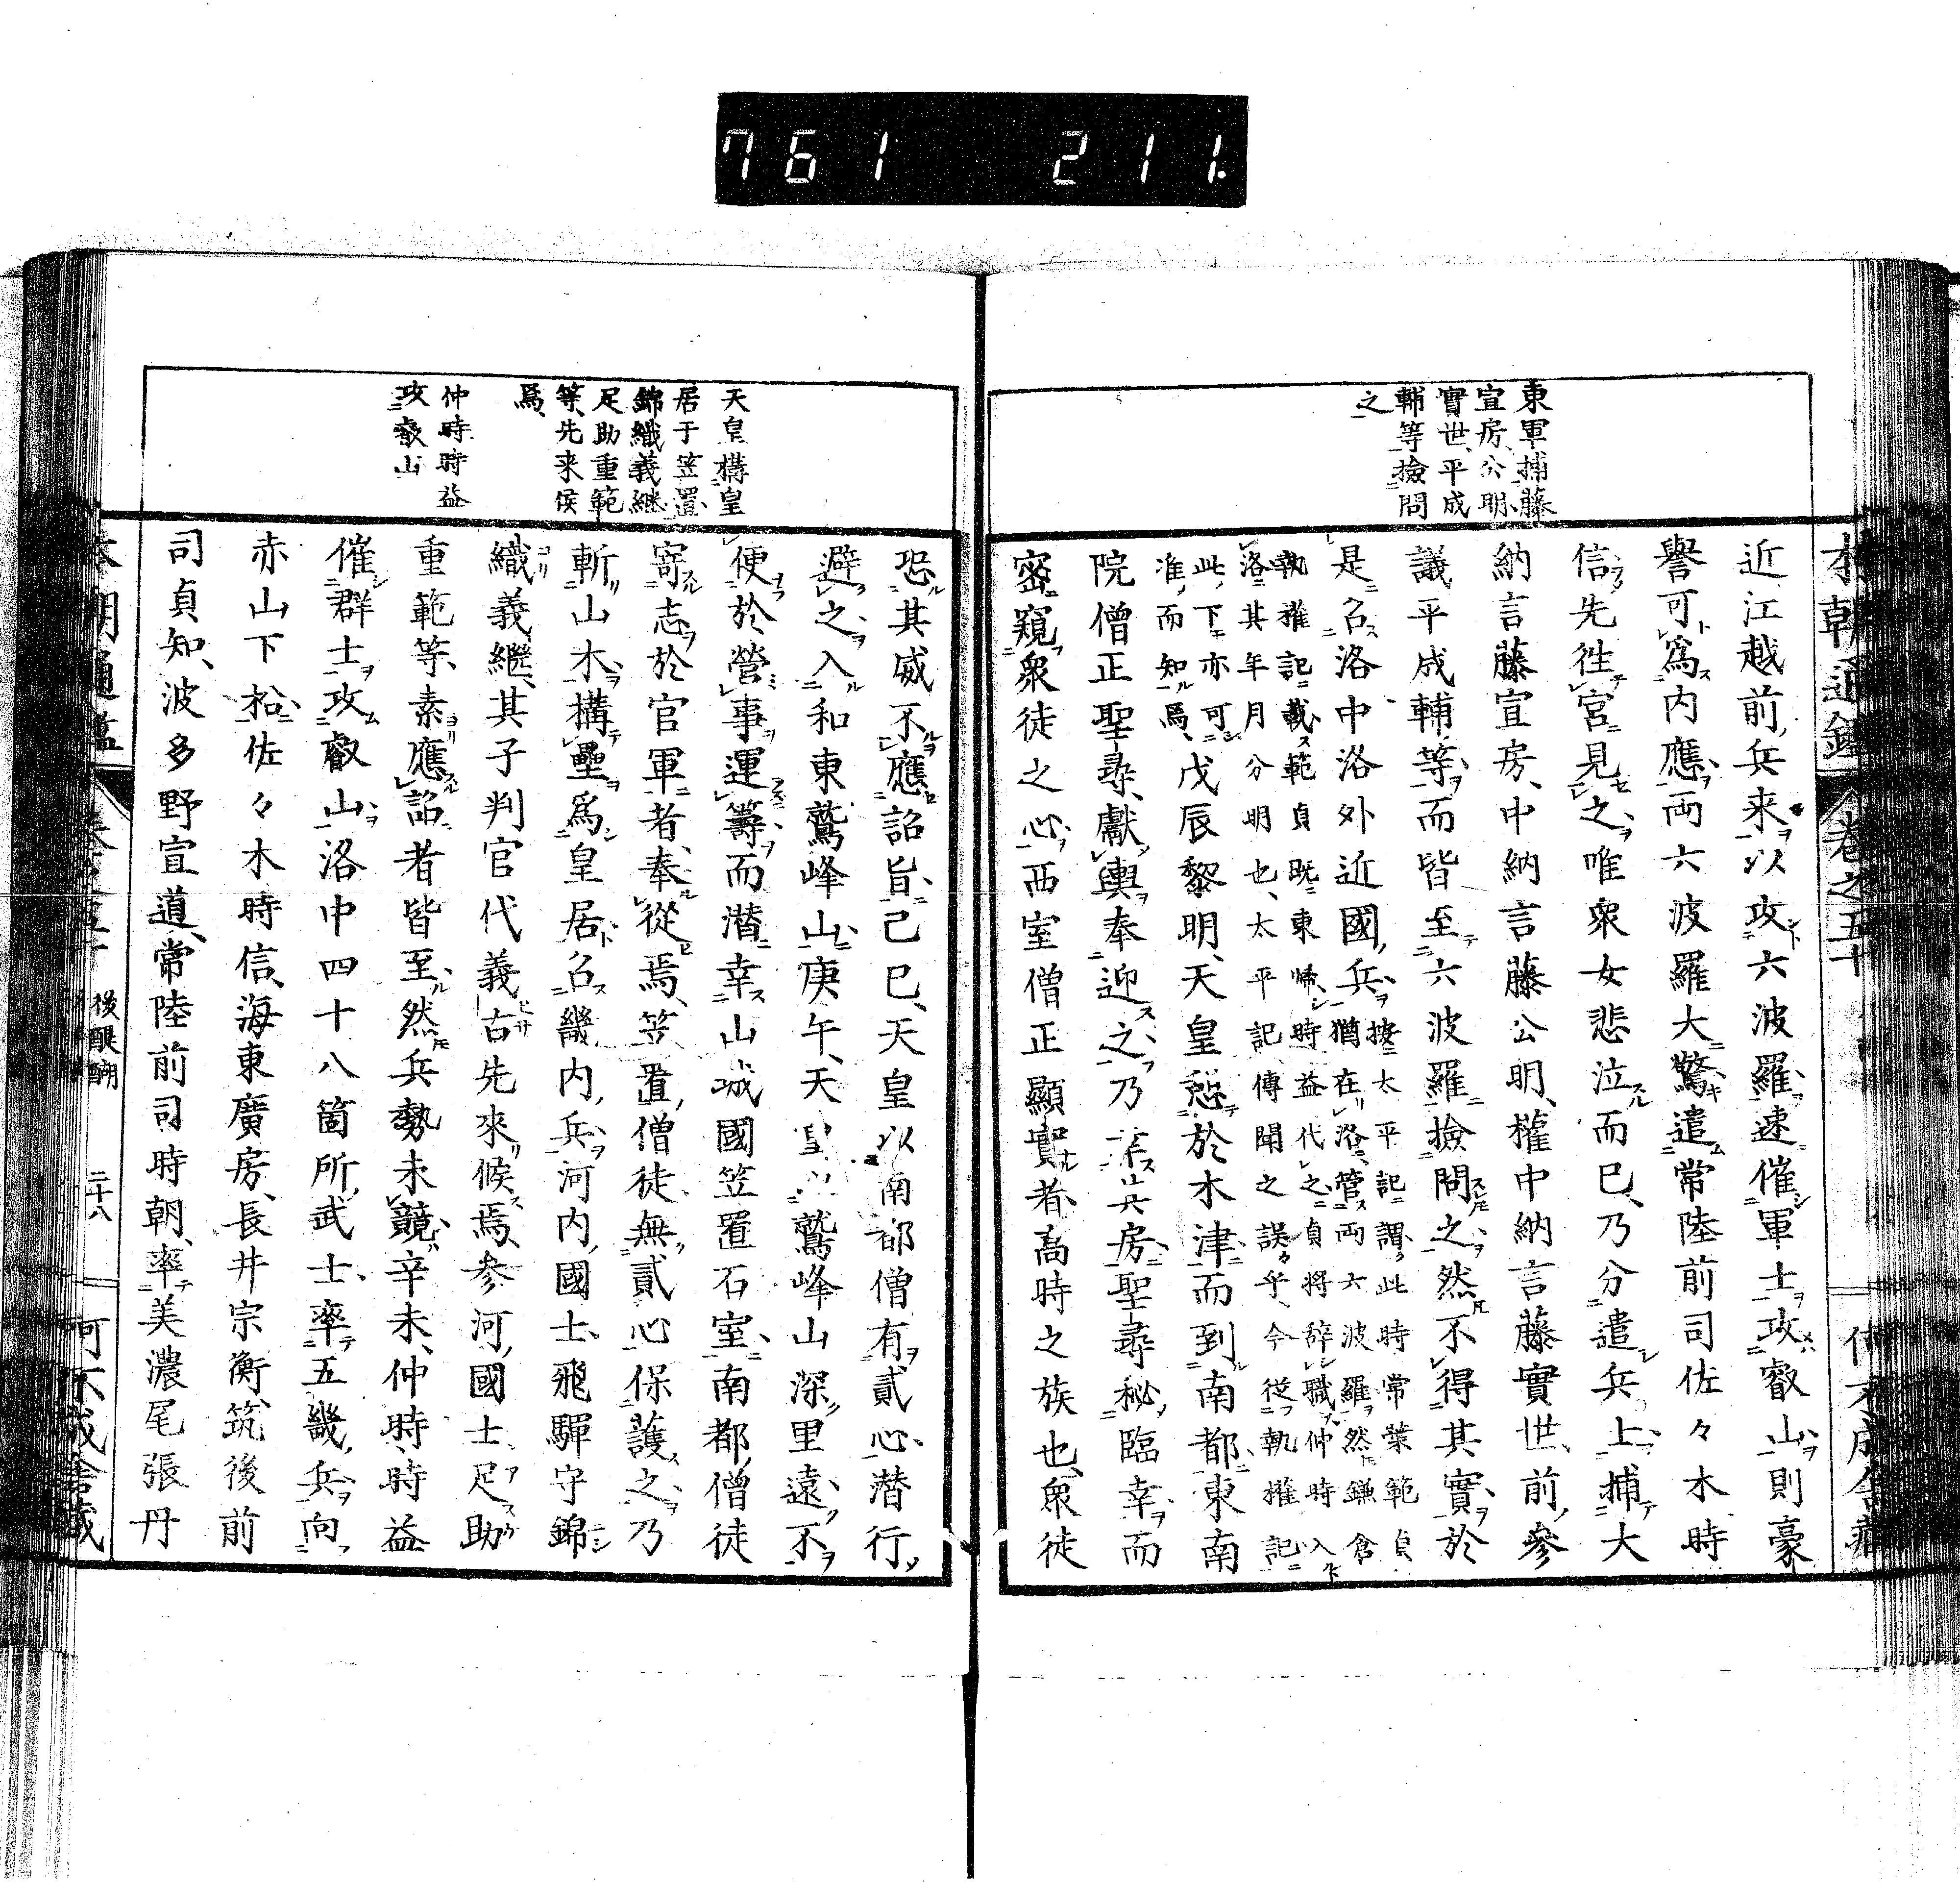 761 211.
東軍捕藤
宣房公明
實世平成
輔等撿問
之
近江越前兵来以攻六波羅速催軍士攻叡山則豪
譽可爲内應両六波羅大驚遣常陸前司佐々木時
信先徃宮見之唯衆女悲泣而已乃分遣兵士捕大
納言藤宣房中納言藤公明權中納言藤實世前參
議平成輔等而皆至六波羅撿問之然不得其實於
是召洛中洛外近國兵
按太平記謂此時常葉範貞
猶在洛管両六波羅然鎌倉
執権記載範貞既東歸時益代之貞将辞職仲時入
洛其年月分明也太平記傳聞之誤乎今従執権記
此下亦可
准而知焉
戊辰黎明天皇憩於木津而到南都東南
院僧正聖尋獻輿奉迎之乃 房聖尋秘臨幸而
密窺衆徒之心西室僧正顯實者高時之族也衆徒
天皇構皇
居于笠置
錦織義継
足助重範
等先来侯
焉
仲時時益
攻叡山
恐其威不應詔旨己巳天皇以南都僧有貳心潜行
避之入和東鷲峰山庚午天皇以鷲峰山深里遠不
便於營事運籌而潜幸山城國笠置石室南都僧徒
寄志於官軍者奉從焉笠置僧徒無貳心保護之乃
斬山木構壘爲皇居召畿内兵河内國士飛驒守錦
織義繼其子判官代義右先來候焉参河國士足助
重範等素應詔者皆至然兵勢未競辛未仲時時益
催群士攻叡山洛中四十八箇所武士率五畿兵向
赤山下松佐々木時信海東廣房長井宗衡筑後前
司貞知波多野宣道常陸前司時朝率美濃尾張丹
後醍醐
二十八